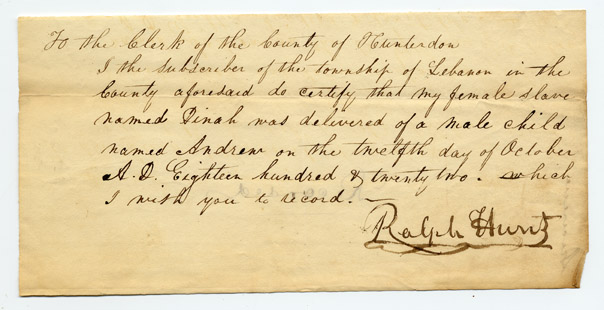 To the Clerk of the County of Hunterdon
I the subscriber of the township of Lebanon in the
County aforesaid do certify that my female slave
named Dinah was delivered of a male child
named Andrew on the twelfth day of October
A.D. Eighteen hundred & twenty two. which
I wish you to record. —
Ralph Hunt